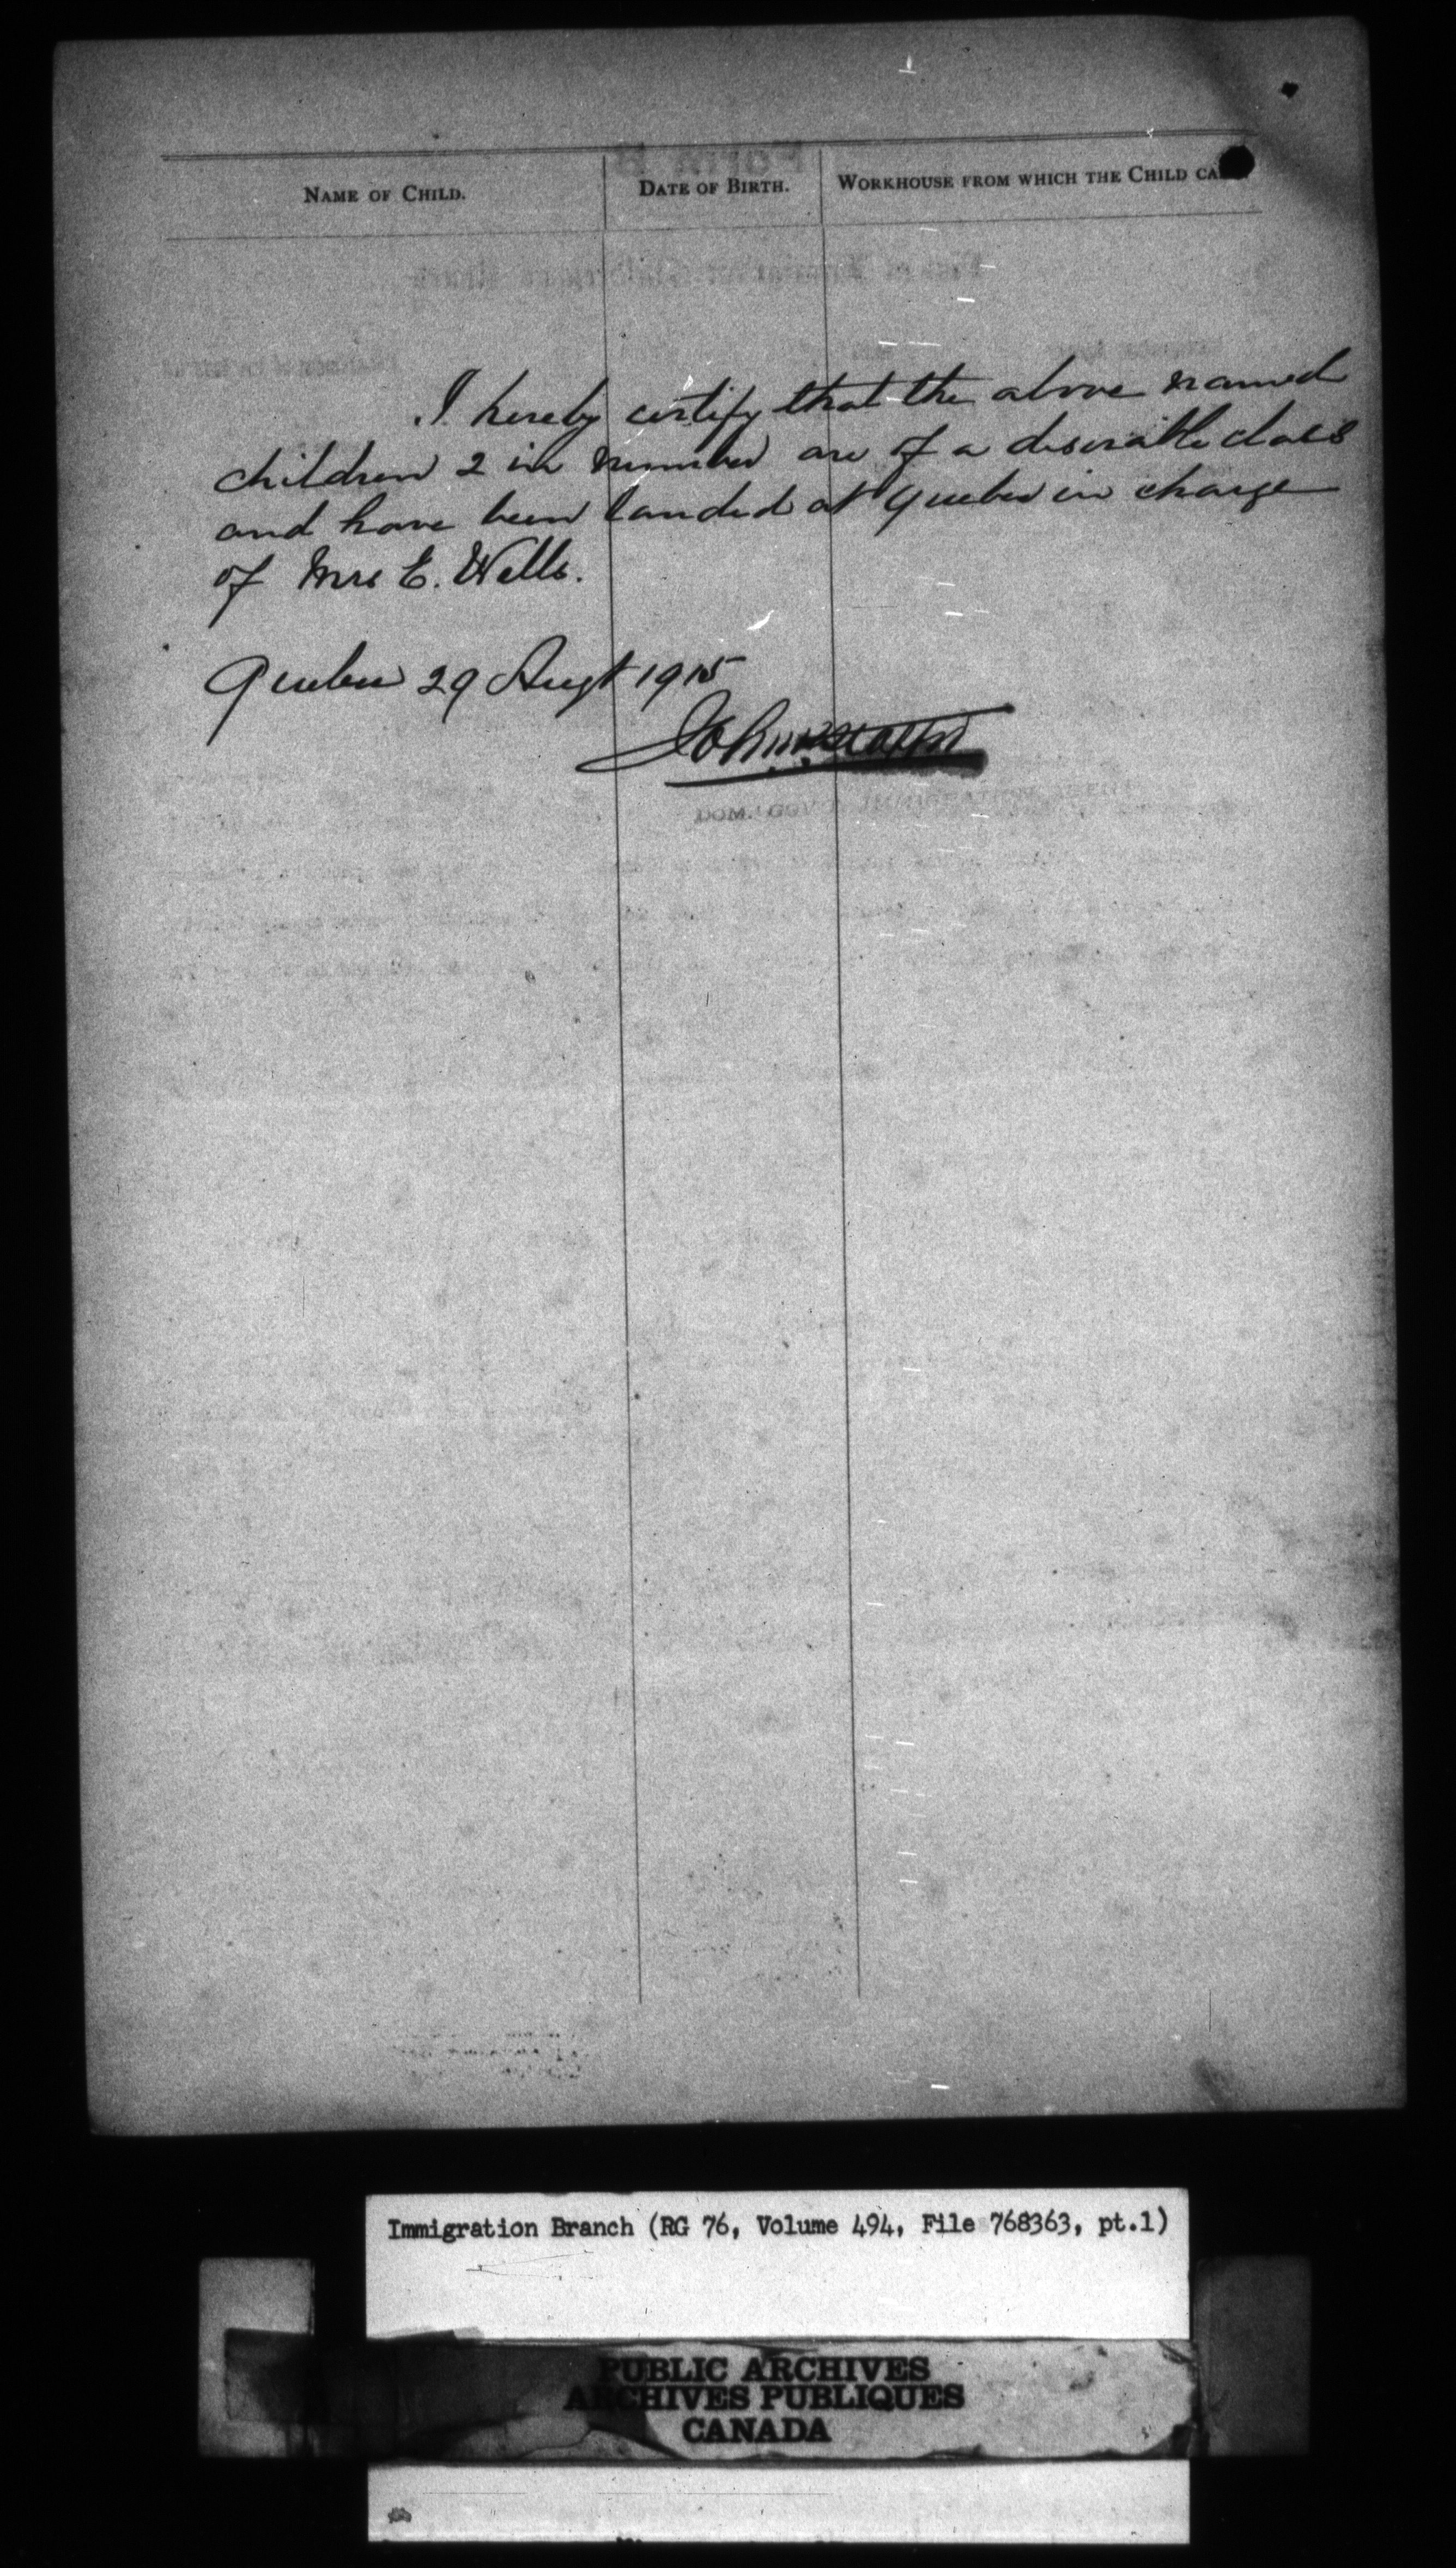 NAME OF CHILD.
DATE OF BIRTH.
WORKHOUSE FROM WHICH THE CHILD
I hereby certify that the above named
children 2 in number are of a desirable class
and have been landed at Quebec in charge
of Mrs E. Wells.
Quebec 29 Augt 1915
Immigration Branch (RG 76, Volume 494, File 768363, pt.1)
PUBLIC ARCHIVES
ARCHIVES PUBLIQUES
CANADA